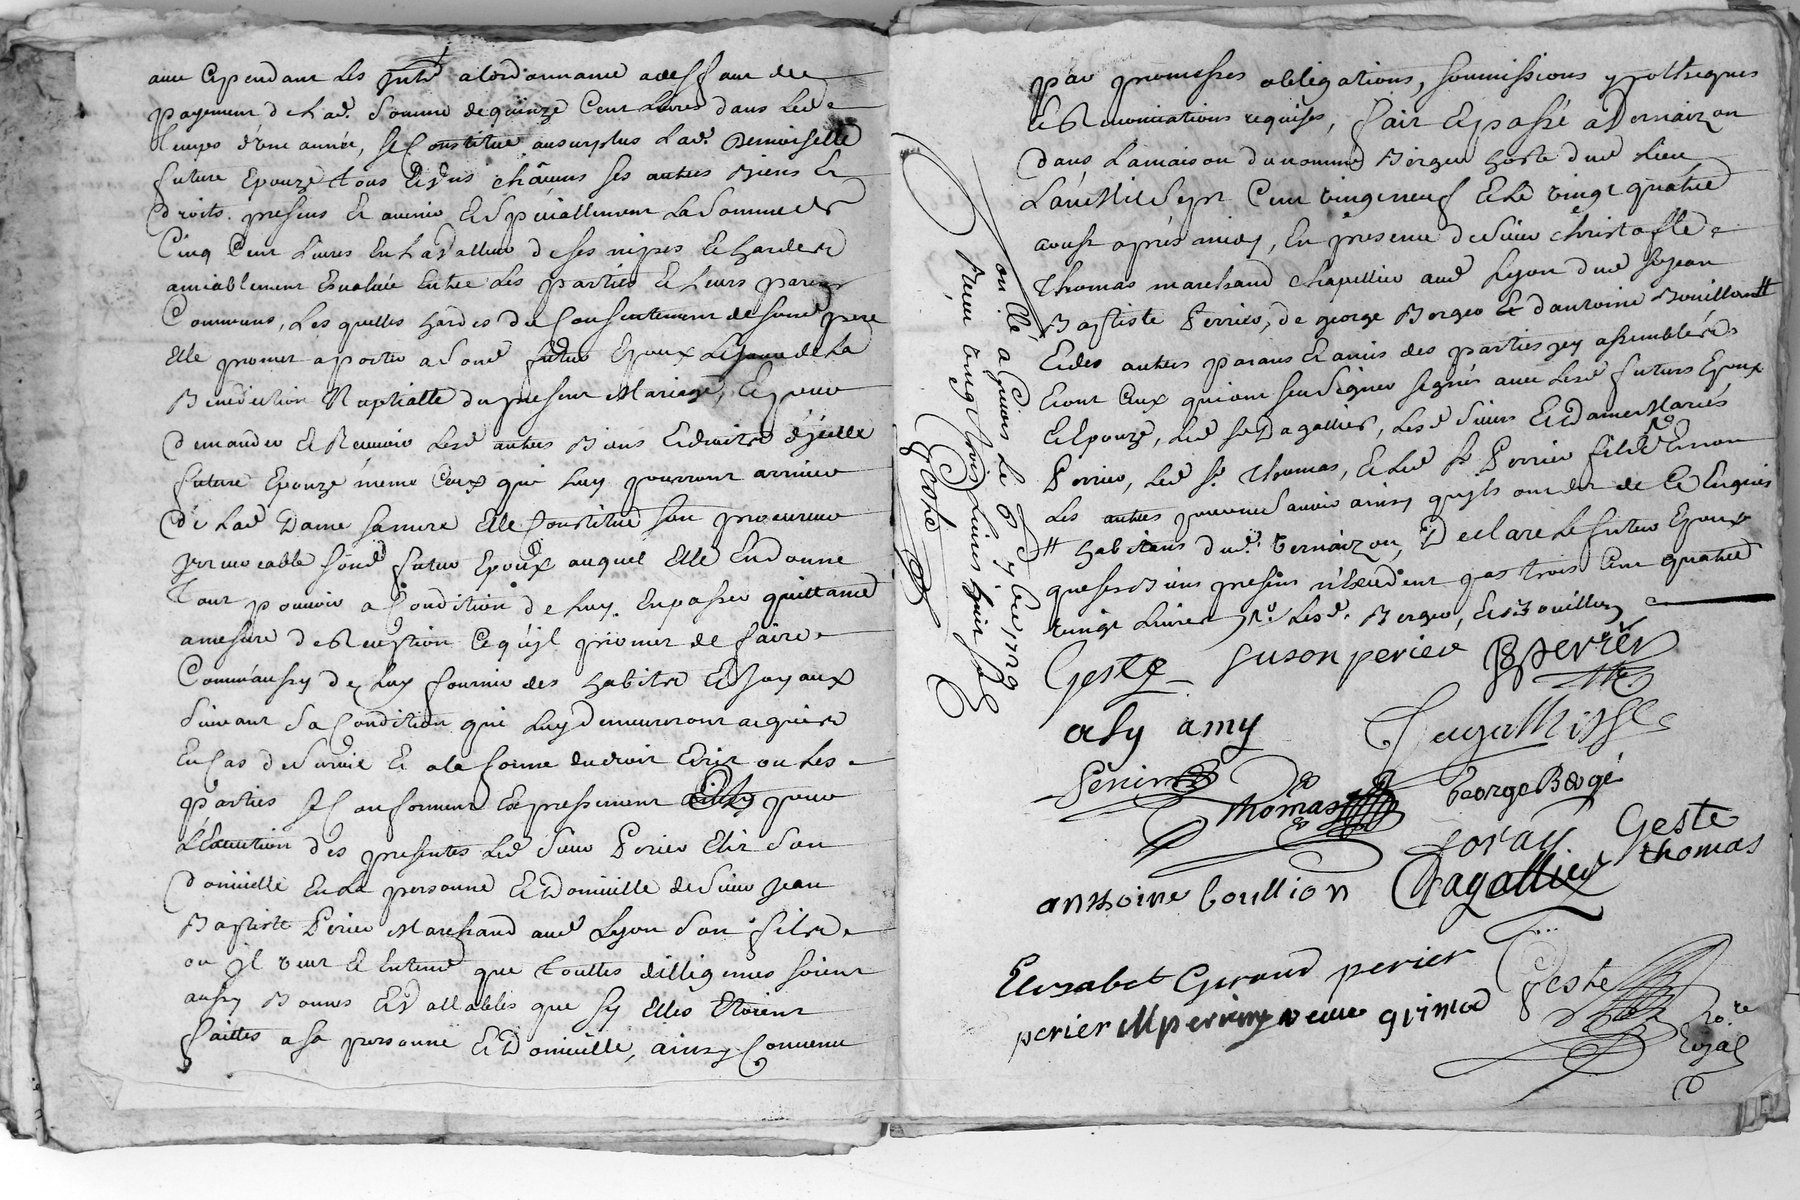 avec cependant les Intts a lordonnance a deffaut de
payement de lad. somme de quinze cent livres dans led.
temps d'une année, se constitue ausurplus lad. Demoiselle
future Epouze tous Et uns châcuns ses autres Biens Et
droits presens Et avenir Et spéciallement La somme de
Cinq Cent Livres En la valleur de ses nipes Et hardes
amiablement Evaluée Entre Les parties Et Leurs parens
Communs, Lesquelles hardes du Consentement de sond. pere
Elle promet aporter a sond. futur Epoux Le jour de La
Benediction Nuptialle du present Mariage, Et pour
demander Et Recevoir Lesd. autres Biens Et droits d'jcelle
future Epouze même Ceux qui luy pourront arriver
de Lad. Dame sa mere Elle Constitue son procureur
jrrevocable sond. futur Epoux auquel Elle En donne
Tout pouvoir a Condition de luy En passer quittance
amesure de Reception Ce qu'jl promet de faire
Comm'aussy de luy fournir des habits Et joyaux
suivant sa Condition qui luy demeureront acquis
En Cas de survie Et a la forme du droit Ecrit ou Les
parties se Conforment Expressement pour
L'Execution des presentes Led. sieur Perier Elit son
domicille En la personne Et Domicille de sieur jean
Baptiste Périer Marchand aud. Lyon son fils
ou jl veut Et Entend que touttes dilligences soient
aussy Bonnes Et vallables que sy Elles Etoient
faittes a sa personne Et Domicille, ainsy Convenu
par promesses obligations, soumissions ypotheques
Et Renonciations requises, fait Et passé a Vernaizon
dans La maison du nommé Berger hoste dud. Lieu
L'an Mil sept Cent vingt neuf Et Le vingt quatre
aoust aprés midy, En presence de sieur christofle
Thomas marchand chapellier aud. Lyon dud. sr jean
Baptiste Perrier, de george Berger Et d'antoine Bouillon #
Et des autres parans Et amis des parties jcy assemblés
Et ont Ceux qui ont sceu signer signés avec Lesd. futurs Epoux
Et Epouze, Led. sr Dagallier, Lesd. sieur Et dame Mariés
Perrier, Led. sr Thomas, Et Led. sr Perrier fils Et non
Les autres pour ne sçavoir ainsy qu'jls ont dit de Ce Enquis
# habitans dud. Vernaizon, Declare Le futur Epoux
que ses Biens presens n'Excedent pas trois Cent quatre
vingt Livres Lesd. Berger, Et Bouillon
Controllé a Givors Le 6 7bre 1729
Receu vingt trois Livres huit sols
Geste
Geste suson perier B perrier
aly amy Dagallier
Perier Thomas George Bergé
Geste
thomas
anthoine boullion Dagallier
Elizabet Giraud perier
perier M perrin veuve grimod
Geste
No.re
Royal